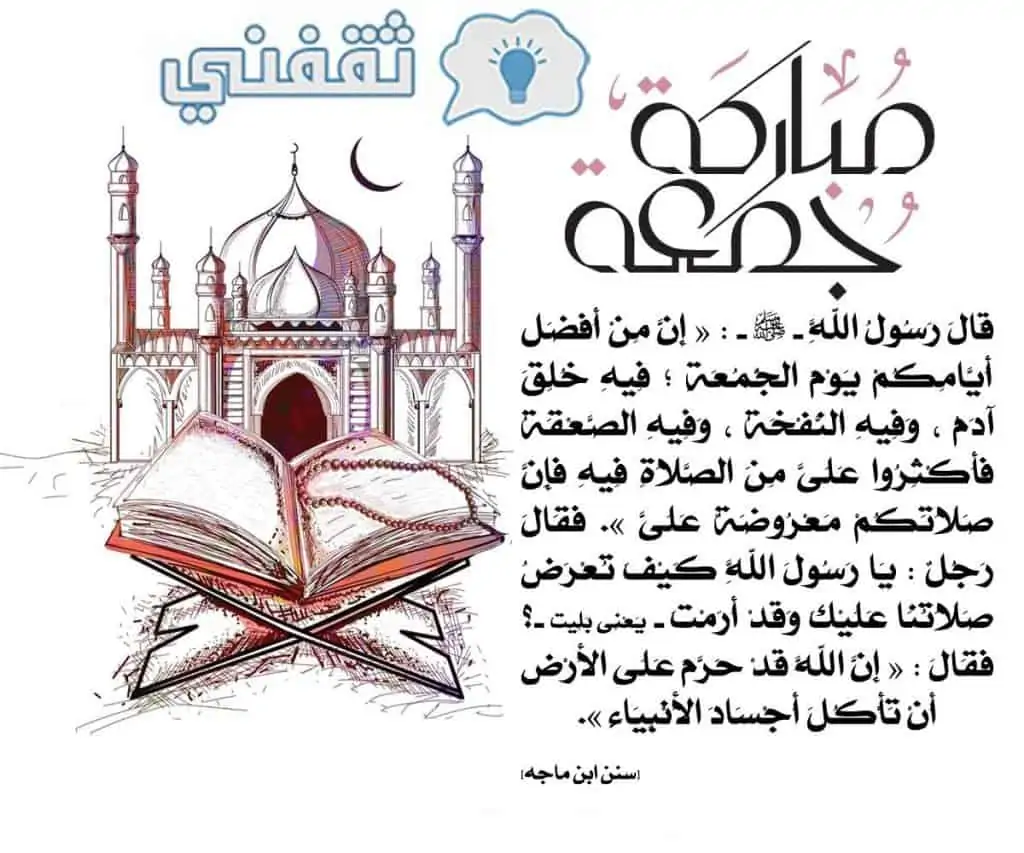 ثقفني
مُباركَة
جُمعَة
قالَ رَسُولُ اللَّهِ ـ ﷺ ـ : « إنَّ مِن أفضل
أيَّامِكمْ يَوْم الجُمُعة ؛ فِيهِ خلِقَ
آدم ، وَفيهِ النَفخة ، وَفِيهِ الصَّعقة
فأكثِرُوا علىَّ مِنْ الصَّلاةِ فِيهِ فإنَّ
صَلاتكمْ مَعْرُوضَة علىَّ ». فقالَ
رَجلٌ : يَا رَسُولَ اللَّهِ كيْف تعْرَضُ
صَلاتنا عليْك وَقدْ أرَمْت ـ يعنى بليت ـ؟
فقالَ : « إنَّ اللَّهَ قدْ حرَّم على الأرْض
أنْ تأكلَ أجْسَادَ الأنْبيَاء ».
[سنن ابن ماجه]